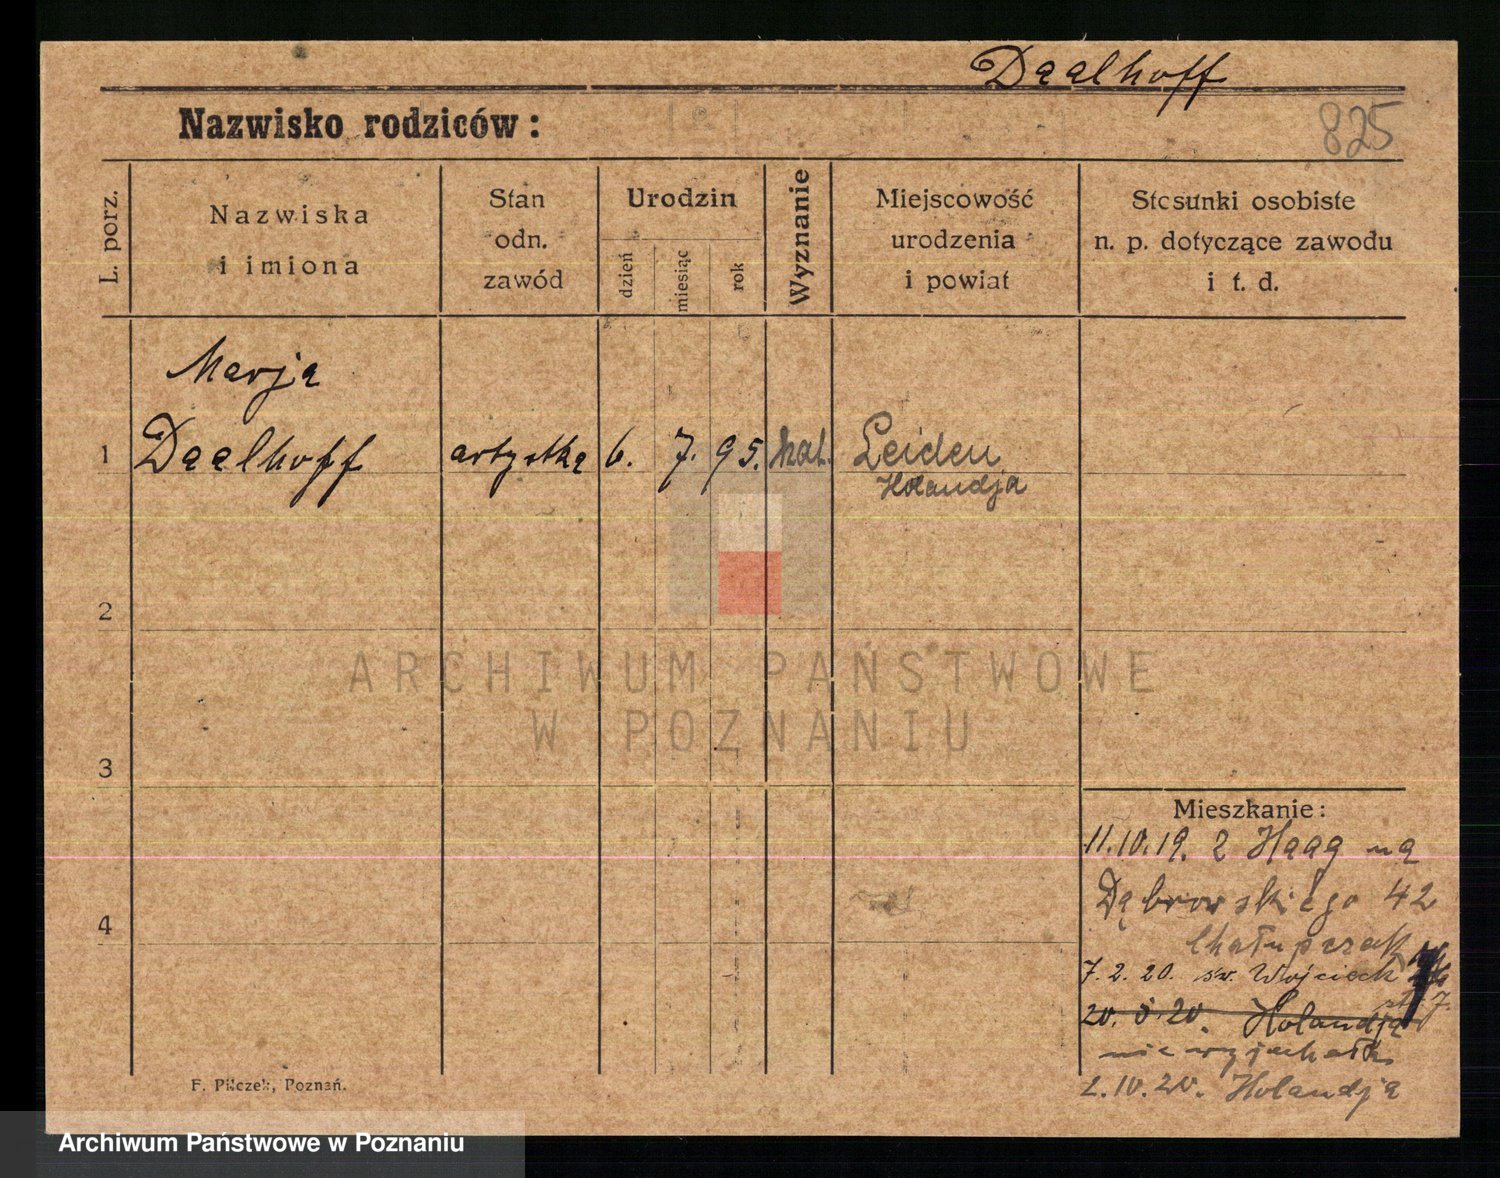 Daalhoff
Nazwisko rodziców:
825
L. porz.
Nazwiska
i imiona
Stan
odn.
zawód
Urodzin
dzień
miesiąc
rok
Wyznanie
Miejscowość
urodzenia
i powiat
Stosunki osobiste
n. p. dotyczące zawodu
i t. d.
Marja
1 Daalhoff artystka 6. 7. 95. kat. Leiden
Holandja
2
ARCHIWUM PAŃSTWOWE
W POZNANIU
3
Mieszkanie:
11.10.19. z Haag na
Dąbrowskiego 42
4
7. 2. 20. św. Wojciech
20. 20. Holandja
nie wyjechała
2.10.20. Holandja
F. Pilczek, Poznań.
Archiwum Państwowe w Poznaniu